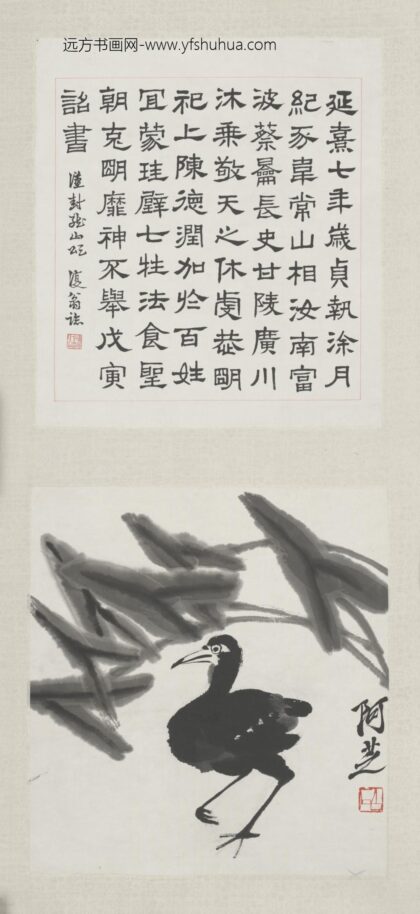 远方书画网-www.yfshuhua.com
延熹七年歲貞執涂月
紀豕韋常山相汝南富
波蔡龠長史甘陵廣川
沐乘敬天之休虔恭眀
祀上陳德潤加於百姓
宜蒙珪璧七牲法食聖
朝克眀靡神不舉戊寅
詔書
漢封龍山頌 復翁誌
阿芝